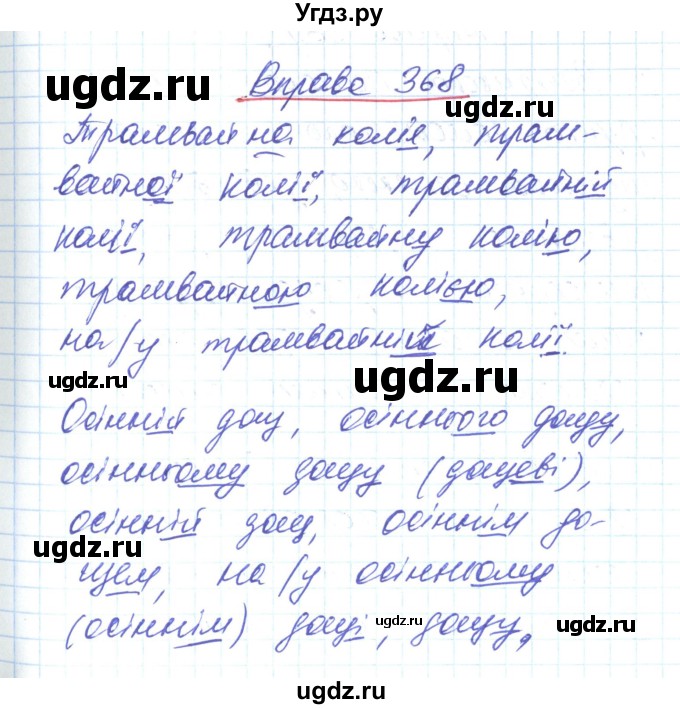 Угдз.ру
ugdz.ru
Вправа 368
ugdz.ru
Трамвайна колія, трам-
вайної колії, трамвайній
колії, трамвайну колію,
ugdz.ru
трамвайною колією,
на/у трамвайній колії
ugdz.ru
ugdz.ru
Осінній дощ, осіннього дощу,
осінньому дощу (дощеві),
осінній дощ, осіннім до-
ugdz.ru
щем, на/у осінньому
(осіннім) дощі, дощу,
ugdz.ru
ugdz.ru
ugdz.ru
ugdz.ru